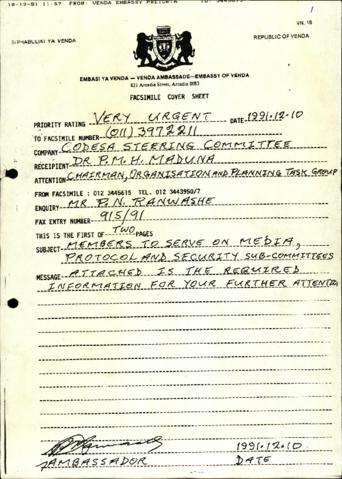 10-12-91 11:57 FROM: VENDA EMBASSY PRETORIA
1
VN. 16
RIPHABULIKI YA VENDA
REPUBLIC OF VENDA
EMBASI YA VENDA — VENDA AMBASSADE — EMBASSY OF VENDA
FACSIMILE COVER SHEET
PRIORITY RATING VERY URGENT DATE 1991.12.10
TO FACSIMILE NUMBER (011) 3972211
COMPANY CODESA STEERING COMMITTEE
RECEIPIENT DR P.M.H. MADUNA
ATTENTION CHAIRMAN, ORGANISATION AND PLANNING TASK GROUP
FROM FACSIMILE : 012 3445615 TEL. 012 3443950/7
ENQUIRY MR P.N. RANWASHE
FAX ENTRY NUMBER 915/91
THIS IS THE FIRST OF TWO PAGES
SUBJECT MEMBERS TO SERVE ON MEDIA,
PROTOCOL AND SECURITY SUB-COMMITTEES
MESSAGE ATTACHED IS THE REQUIRED
INFORMATION FOR YOUR FURTHER ATTENTION
1991.12.10
AMBASSADOR DATE